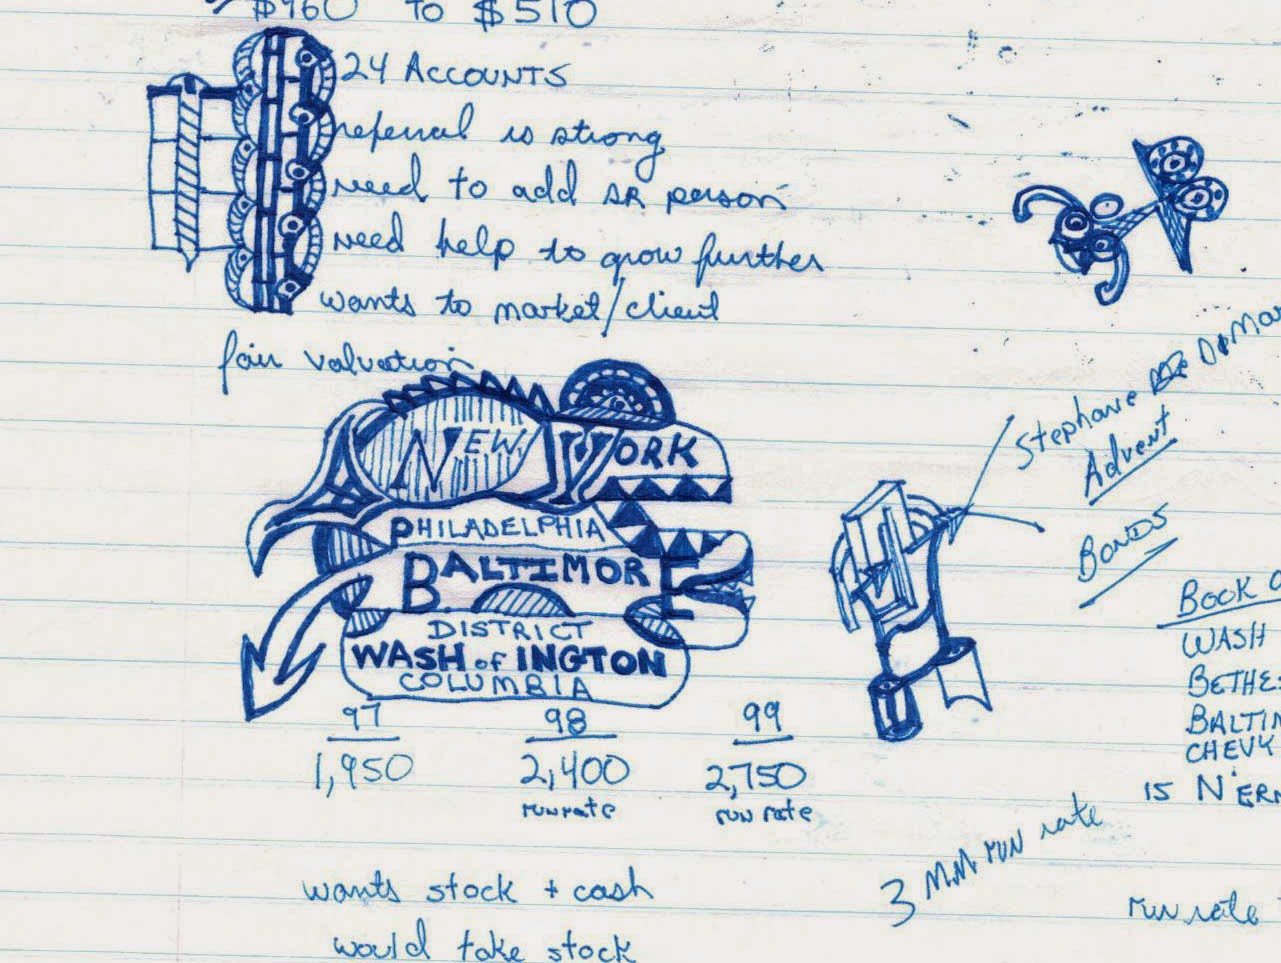 $960 to $510
24 ACCOUNTS
referral is strong
need to add SR person
need help to grow further
wants to market/client
fair valuation
NEW YORK
PHILADELPHIA
BALTIMORE
DISTRICT
WASH of INGTON
COLUMBIA
97 98 99
1,950 2,400 2,750
run rate run rate
wants stock + cash
would take stock
Stephanie
Advent
BONDS
BOOK
WASH
BETHE
BALTIM
CHEVY
15
3 MM RUN rate
run rate